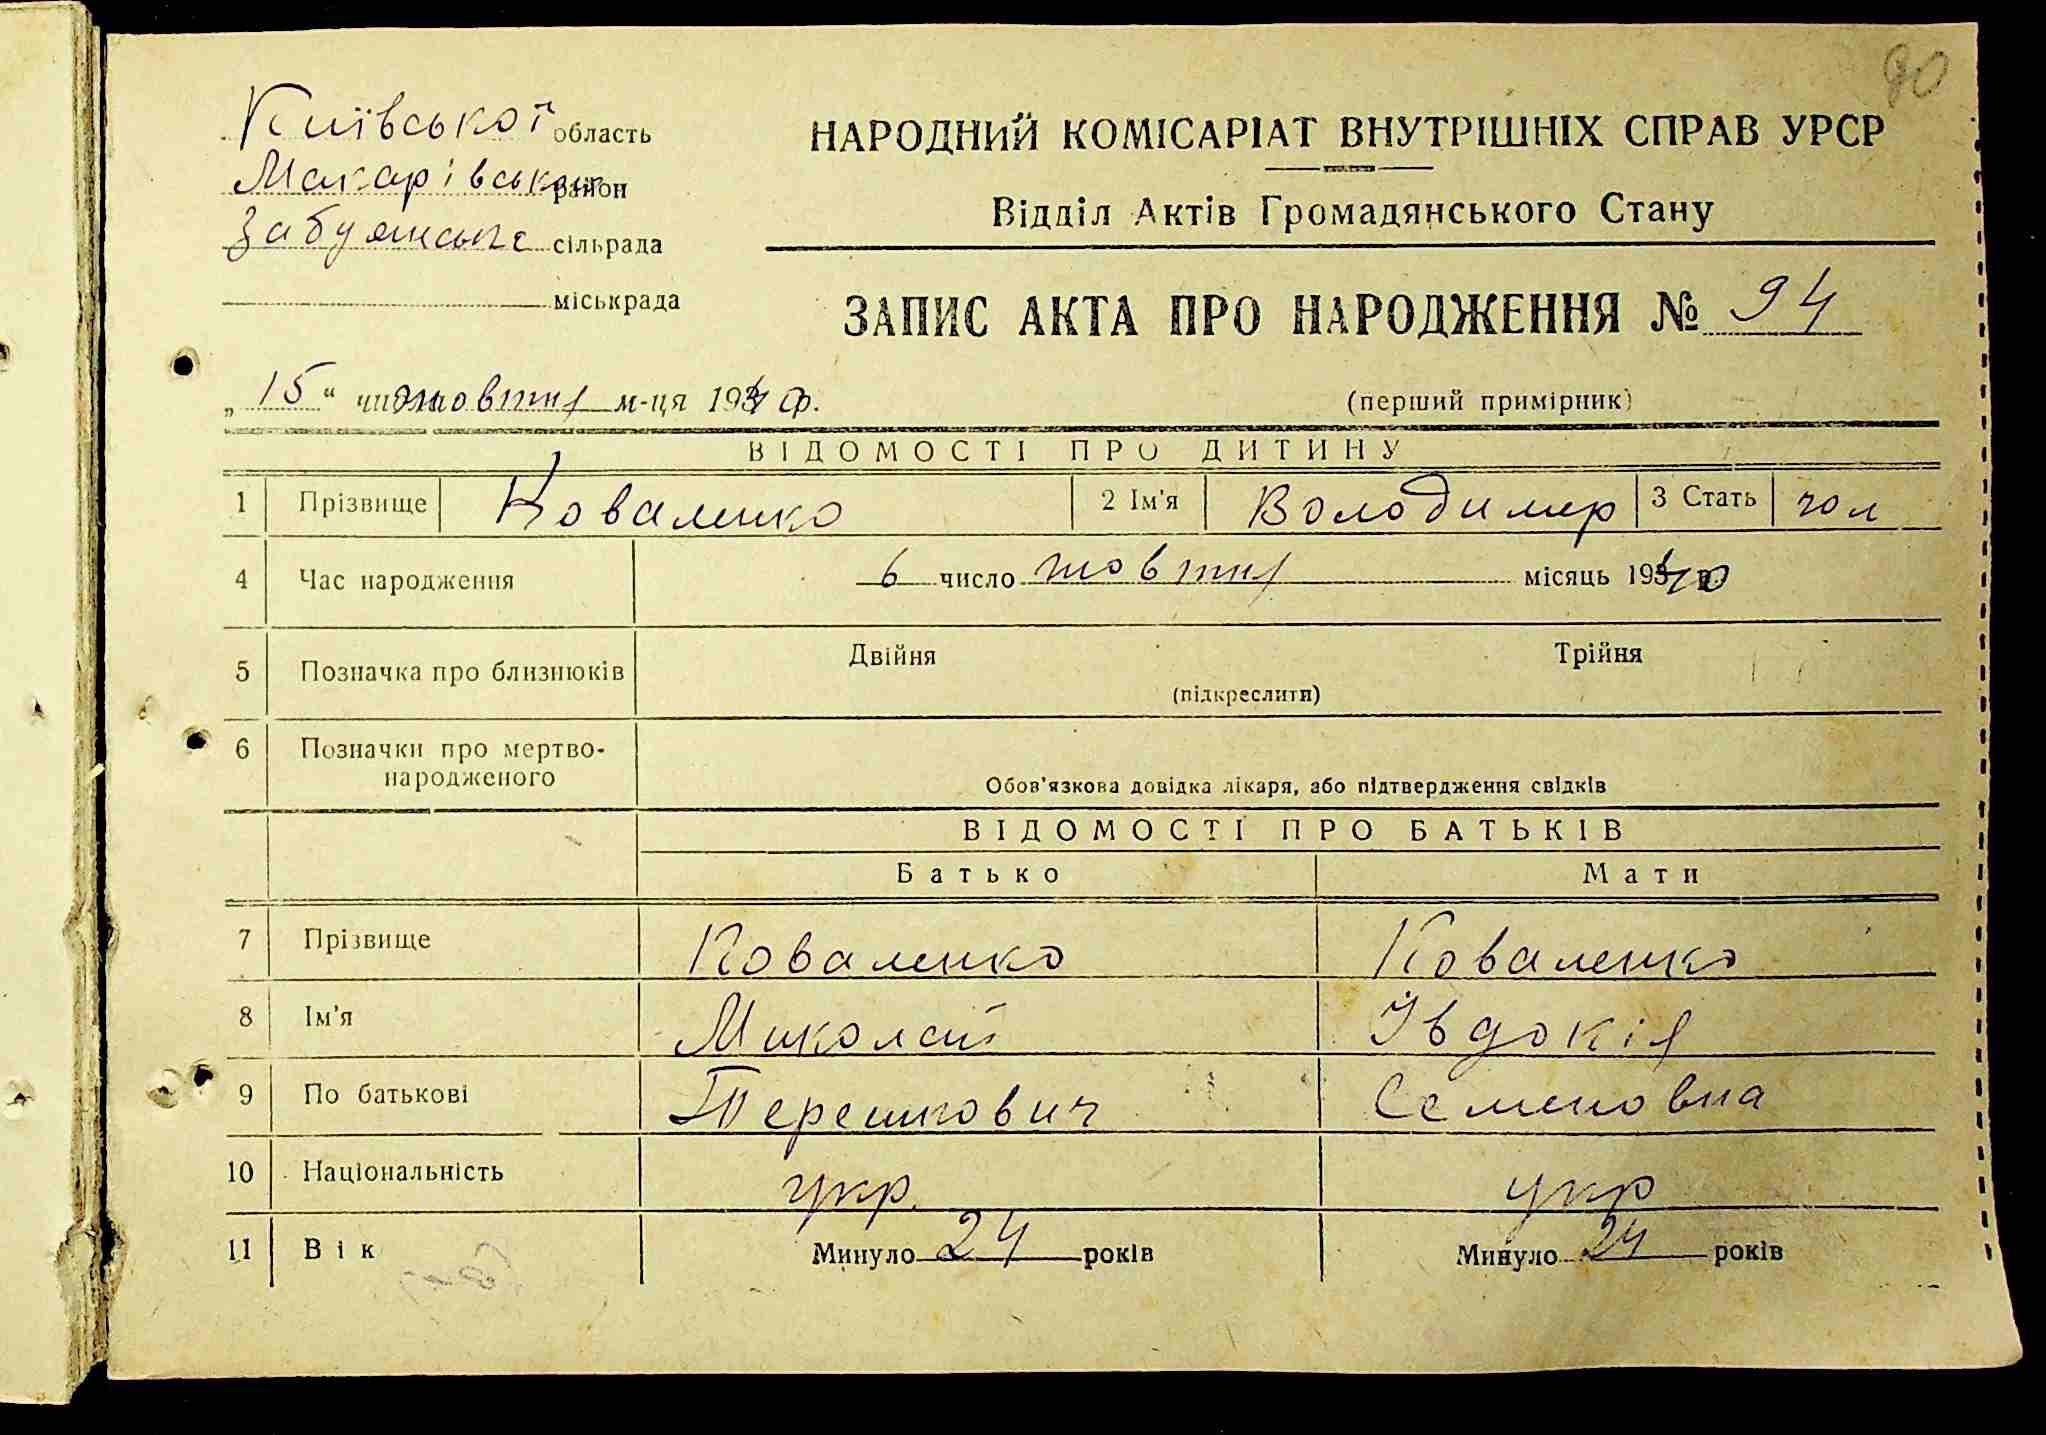 90
Київської область
Макарівськ район
Забуянська сільрада
міськрада
НАРОДНИЙ КОМІСАРІАТ ВНУТРІШНІХ СПРАВ УРСР
Відділ Актів Громадянського Стану
ЗАПИС АКТА ПРО НАРОДЖЕННЯ № 94
„15“ числа жовтня м-ця 1940 р.
(перший примірник)
ВІДОМОСТІ ПРО ДИТИНУ
1 Прізвище Коваленко 2 Ім'я Володимер 3 Стать чол
4 Час народження 6 число жовтня місяць 1940 р.
5 Позначка про близнюків Двійня Трійня
(підкреслити)
6 Позначки про мертво-
народженого
Обов'язкова довідка лікаря, або підтвердження свідків
ВІДОМОСТІ ПРО БАТЬКІВ
Батько Мати
7 Прізвище Коваленко Коваленко
8 Ім'я Миколай Івдокія
9 По батькові Терешкович Семеновна
10 Національність укр. укр
11 Вік Минуло 24 років Минуло 24 років